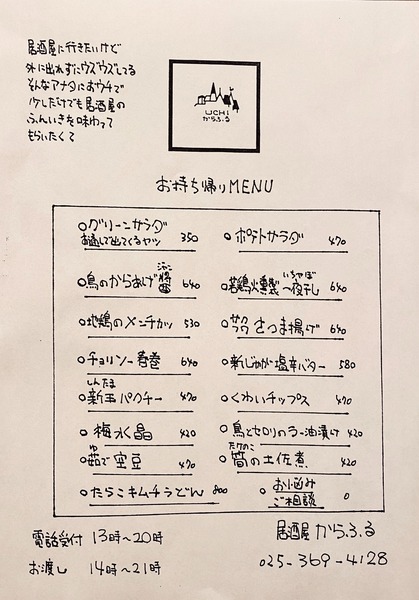 居酒屋に行きたいけど
外に出れずにウズウズしてる
そんなアナタにおウチで
少しだけでも居酒屋の
ふんいきを味わって
もらいたくて
UCHI
からふる
お持ち帰りMENU
グリーンサラダ
お通しで出てくるヤツ 350
ポテトサラダ 470
鳥のからあげ 640
若鶏火燻製一夜干し いちゃぼ 640
地鶏のメンチカツ 530
サクサクさつま揚げ 640
チョリソー春巻 640
新じゃが塩辛バター 580
しんたま
新玉パクチー 470
くわいチップス 470
梅水晶 420
鳥とセロリのラー油漬け 420
ゆ
茹で空豆 470
たけのこ
筍の土佐煮 420
たらこキムチうどん 800
お悩み
ご相談 0
電話受付 13時〜20時
お渡し 14時〜21時
居酒屋 からふる
025-369-4128